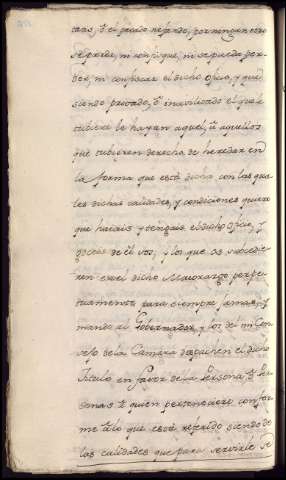 caso, ò el pecado nefando, por ningun otro
se pierda, ni confisque, ni se pueda per-
der, ni confiscar el dicho oficio, y que
siendo privado, ò inavilitado el que le
tubiere le hayan aquel, ù aquellos
que tubieren derecho de heredar en
la forma que està dicha con las qua-
les dichas calidades, y condiciones quiero
que haiais, y tengais el dicho oficio, y
gozeis de èl vos, y los que os subcedie-
ren en el dicho Maiorazgo perpe-
tuamente para siempre jamas, y
mando al Gobernador, y los de mi Con-
sejo de la Camara despachen el dicho
Titulo en favor de la Persona, ò Per-
sonas à quien perteneciere confor-
me à lo que està referido siendo de
las calidades que para servirle se